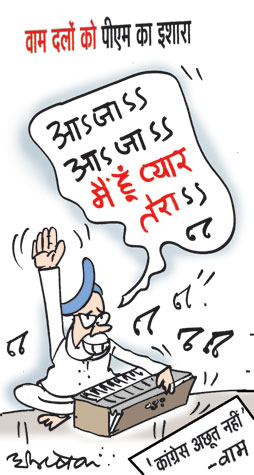 वाम दलों को पीएम का इशारा
आऽजाऽऽ
आऽजाऽऽ
मैं हूँ प्यार
तेराऽऽ
'कांग्रेस अछूत नहीं'
वाम